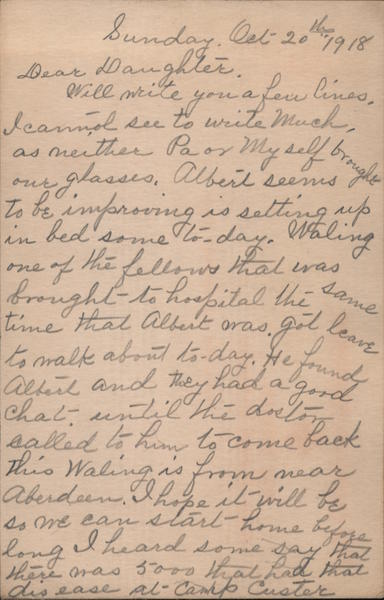 Sunday. Oct 20th, 1918
Dear Daughter.
Will write you a few lines.
I cannot see to write Much,
as neither Pa or My self brought
our glasses. Albert seems
to be improving is setting up
in bed some to-day. Waling
one of the fellows that was
brought to hospital the same
time that Albert was. got leave
to walk about to-day. He found
Albert and they had a good
chat. until the doctor
called to him to come back
this Waling is from near
Aberdeen. I hope it will be
so we can start home before
long I heard some say that
there was 5000 that had that
disease at Camp Custer